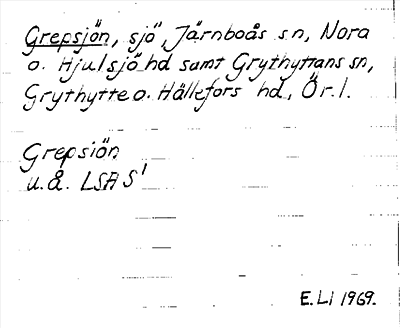 Grepsjön, sjö, Järnboås sn, Nora
o. Hjulsjö hd samt Grythyttans sn,
Grythytte o. Hällefors hd, Ör. l.
Grepsiön
u.å. LSA S1
E.Li 1969.